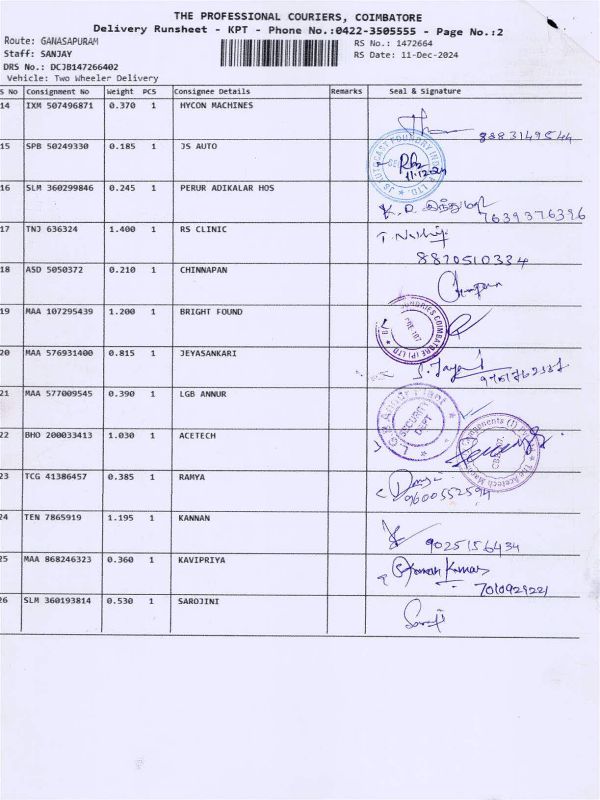 THE PROFESSIONAL COURIERS, COIMBATORE
Delivery Runsheet - KPT - Phone No.:0422-3505555 - Page No.:2
Route: GANASAPURAM RS No.: 1472664
Staff: SANJAY RS Date: 11-Dec-2024
DRS No.: DCJB147266402
Vehicle: Two Wheeler Delivery
S No Consignment No Weight PCS Consignee Details Remarks Seal & Signature
14 IXM 507496871 0.370 1 HYCON MACHINES
8883149544
15 SPB 50249330 0.185 1 JS AUTO
JS AUTOCAST FOUNDRY INDIA P LTD.
11.12.2024
16 SLM 360299846 0.245 1 PERUR ADIKALAR HOS
K. P. இந்துமதி
7639376396
17 TNJ 636324 1.400 1 RS CLINIC
8870510334
18 ASD 5050372 0.210 1 CHINNAPAN
19 MAA 107295439 1.200 1 BRIGHT FOUND
COIMBATORE (P) LTD
20 MAA 576931400 0.815 1 JEYASANKARI
21 MAA 577009545 0.390 1 LGB ANNUR
L.G.B Annur Plant
SECURITY
DEPT
22 BHO 200033413 1.030 1 ACETECH
The Acetech
23 TCG 41386457 0.385 1 RAMYA
9600552594
24 TEN 7865919 1.195 1 KANNAN
9025156434
25 MAA 868246323 0.360 1 KAVIPRIYA
Kumar
7010929221
26 SLM 360193814 0.530 1 SAROJINI